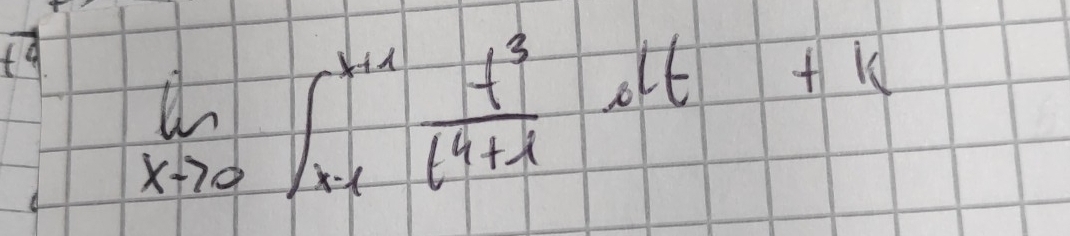 lim x→0 ∫_{x-1}^{x+1} t³/(t⁴+1) dt + k